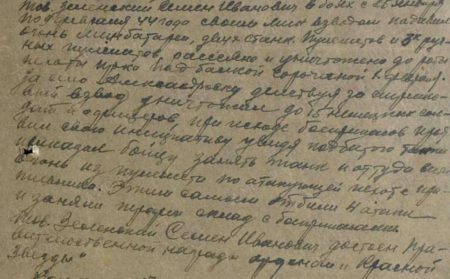 Тов. Зеленский Семен Иванович в боях с 25 января
по февраля 44 года своим мин взводом подавил
огонь минбатареи, двух станк. пулеметов и 3х руч-
ных пулеметов, рассеяно и уничтожено до роты
пехоты пр-ка под балкой Сорочаной 1 февр.
за село действуя за стрелко-
вый взвод уничтожил до 15 немецких сол-
дат и офицеров, при исходе боеприпасов проя-
вил свою инициативу увидя подбитого
приказал бойцу занять танк и оттуда вести
огонь из пулемета по атакующей пехоте про-
тивника. Этим самым отбили 4 атаки
и заняли склад с боеприпасами
Тов. Зеленский Семен Иванович достоен пра-
вительственной награды орденом и Красной
Звезды"